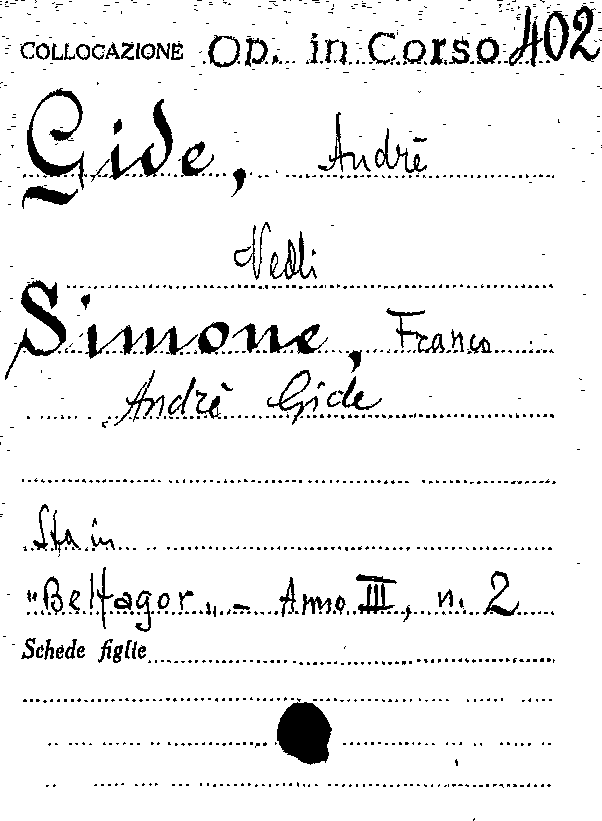 COLLOCAZIONE Op. in Corso 402
Gide, Andrè
Vedli
Simone, Franco
Andrè Gide
Sta in
"Belfagor" - Anno III, n. 2
Schede figlie